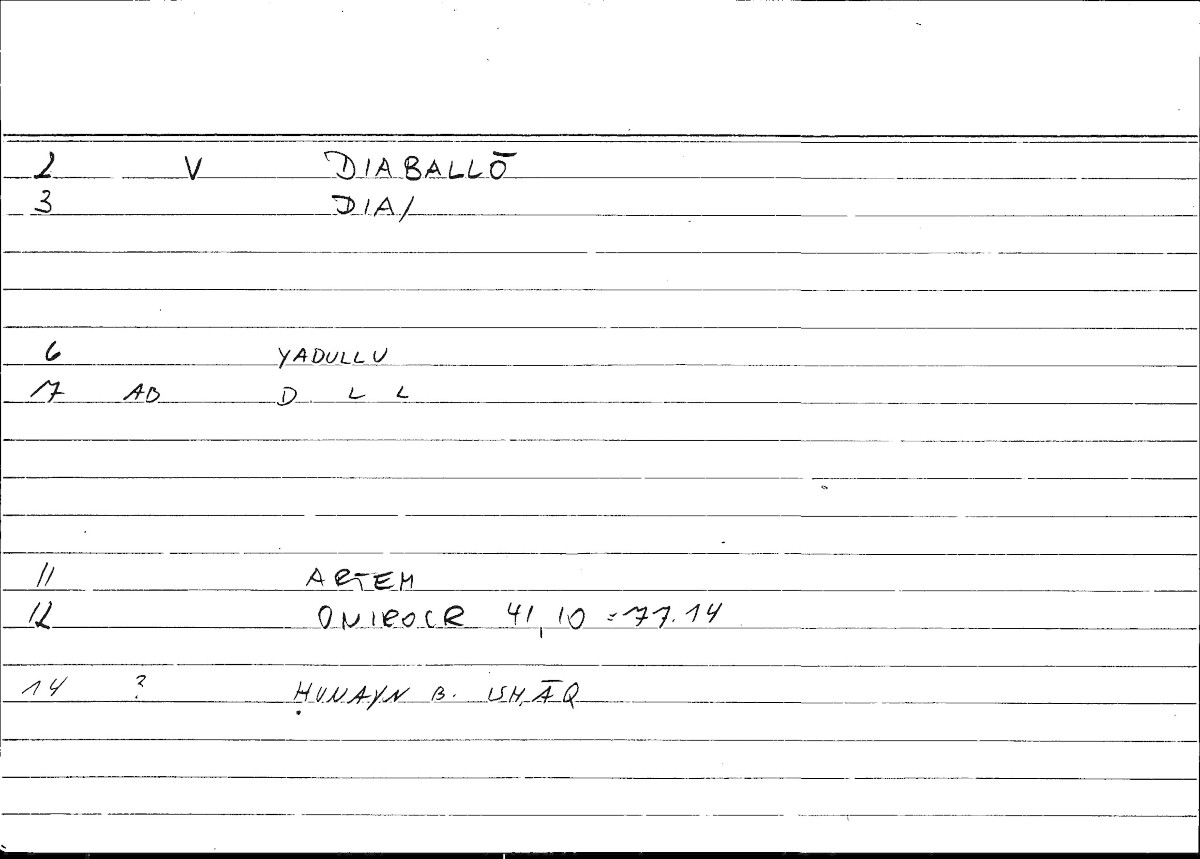 2 V DIABALLŌ
3 DIA/
6 YADULLU
17 AB D L L
11 ARTEM
12 ONIROCR 41,10 = 77.14
14 ? ḤUNAYN B. ISḤĀQ